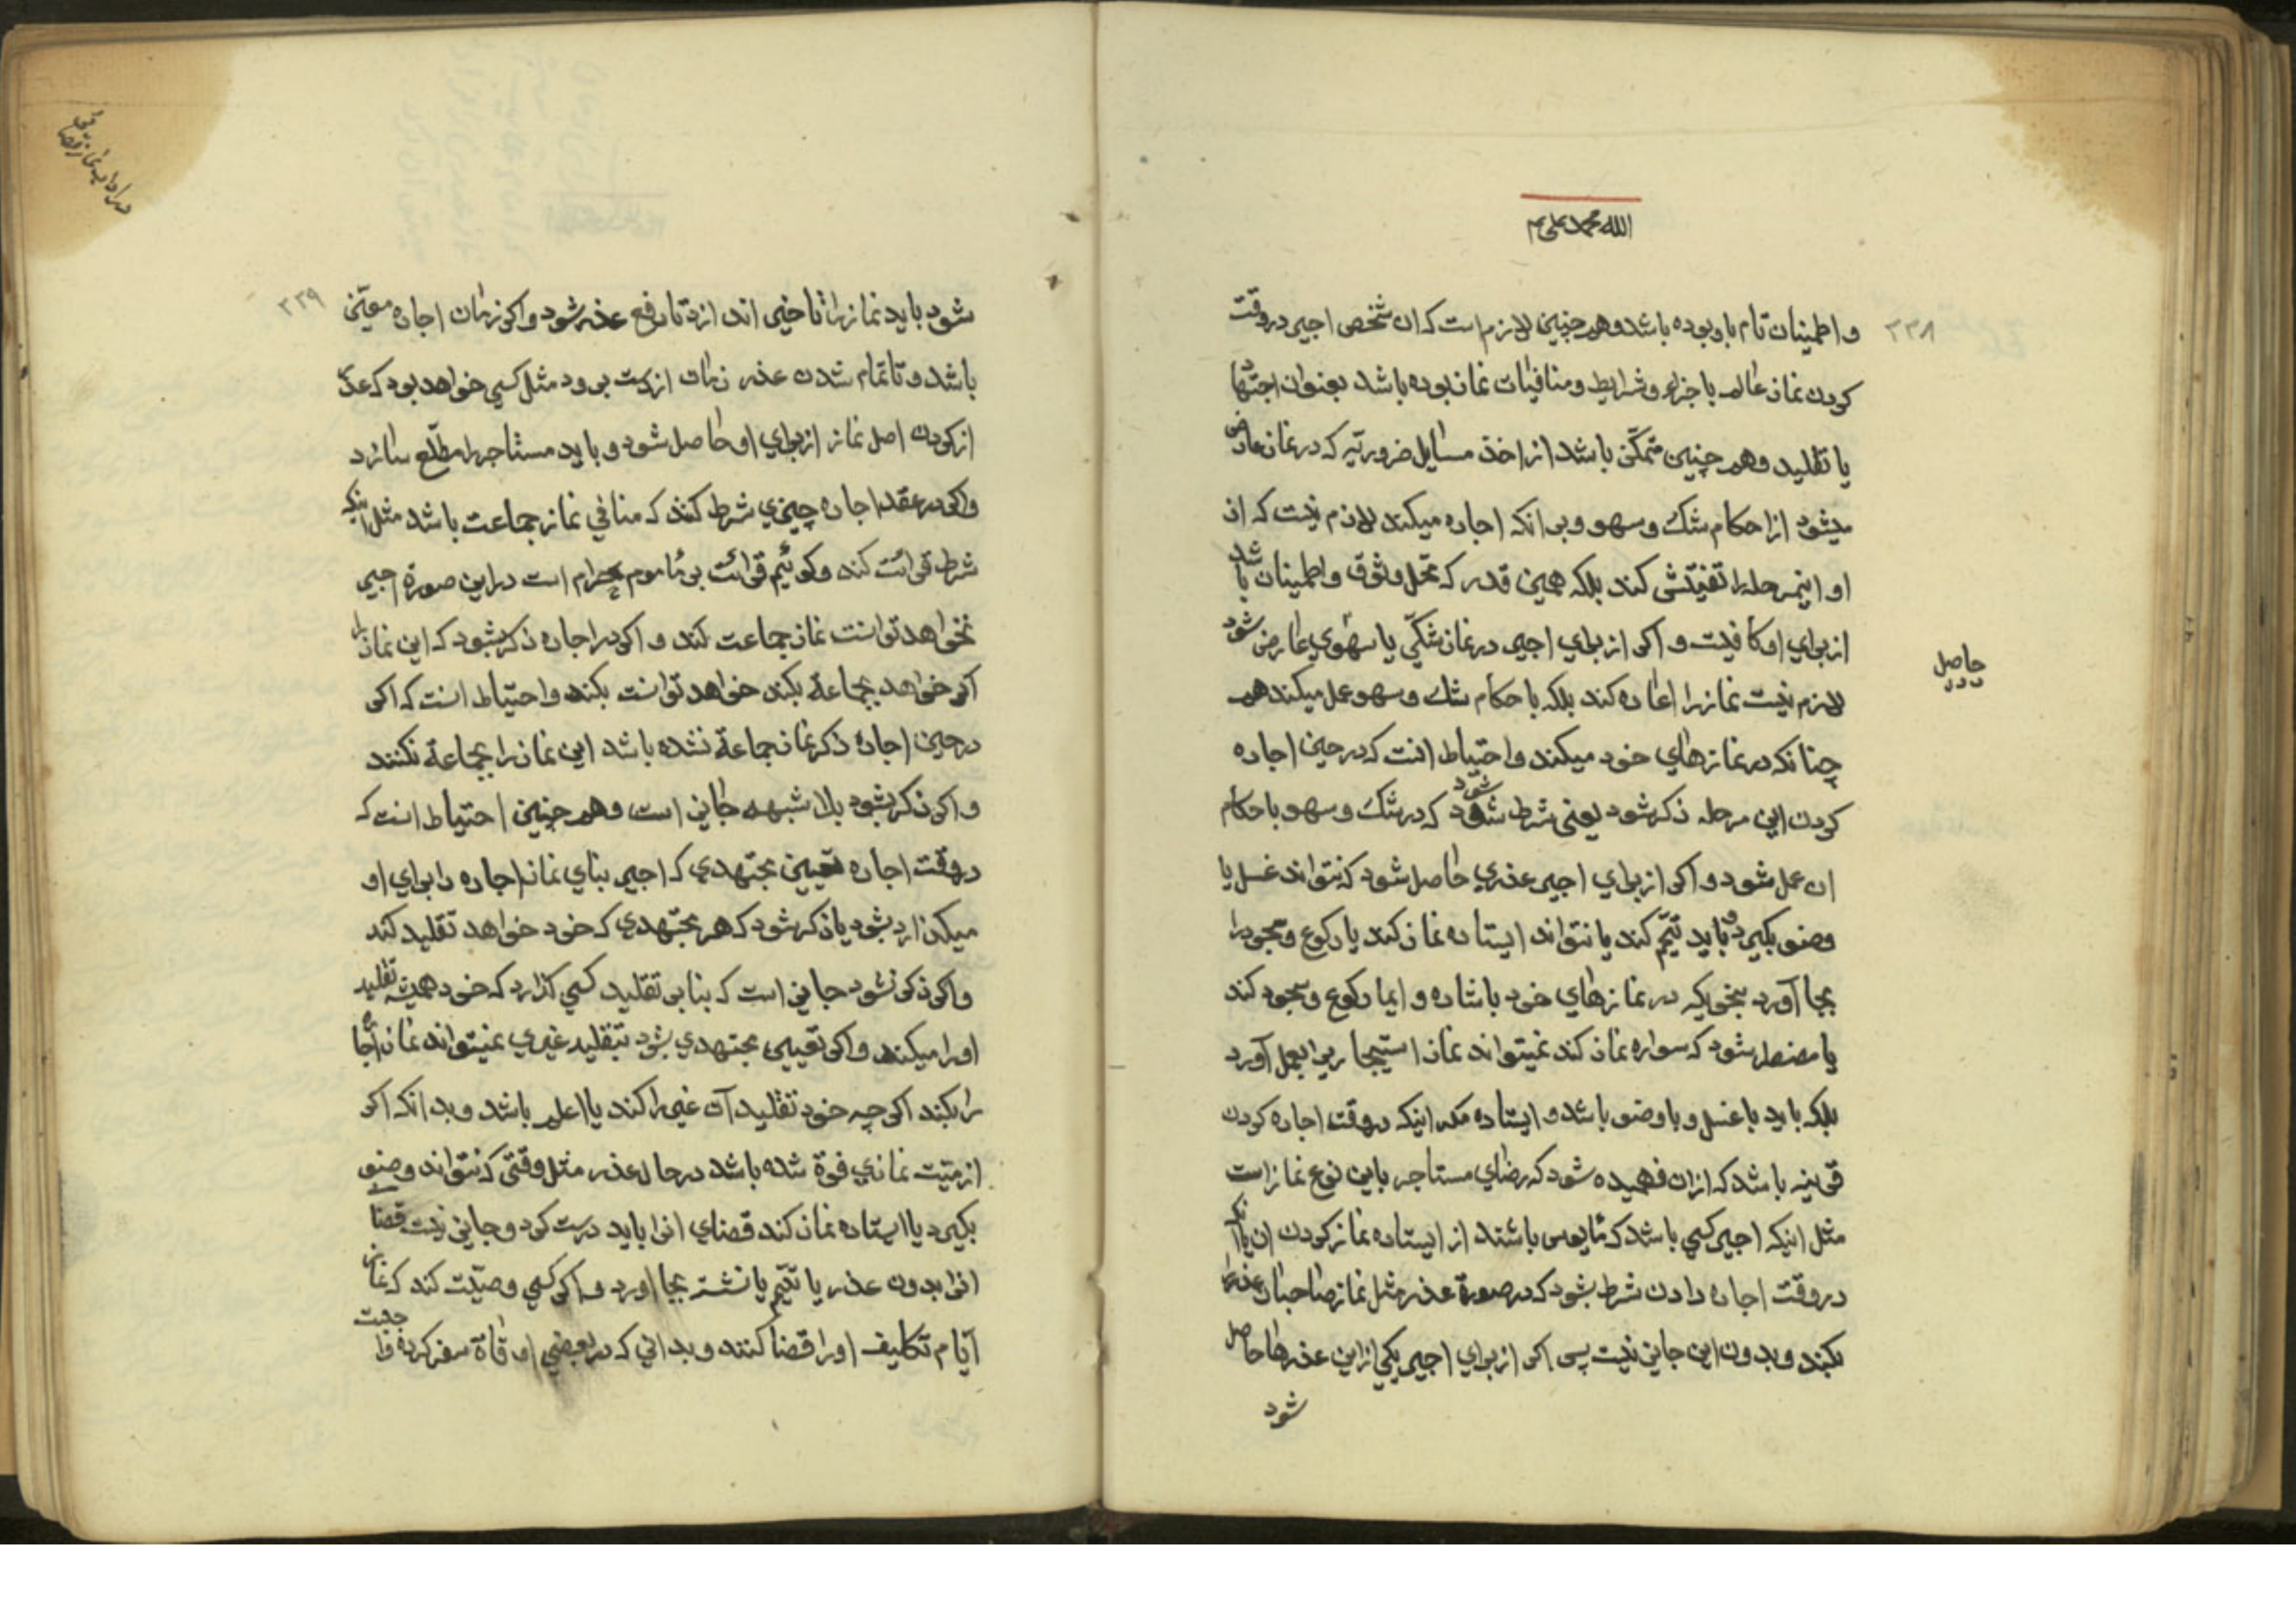 الله محمد علی
۲۳۸
و اطمینان تام باو بوده باشد و هم چنین لازم است که ان شخص اجیر در وقت
کردن نماز عالم باجزاء و شرایط و منافیات نماز بوده باشد بعنوان اجتهاد
یا تقلید و هم چنین متمکّن باشد از اخذ مسایل ضروریّه که در نماز عارض
میشود از احکام شک و سهو و بر انکه اجاره میکند لازم نیست که از
او اینمرحله را تفتیش کند بلکه همین قدر که محل وثوق و اطمینان باشد
از برای او کافیست و اکر از برای اجیر در نماز شکّی یا سهوی عارض شود
حاصل
لازم نیست نماز را اعاده کند بلکه باحکام شک و سهو عمل میکند هم
چنانکه در نمازهای خود میکند و احتیاط انست که در حین اجاره
کردن این مرحله ذکر شود یعنی شرط شود که در شک و سهو باحکام
ان عمل شود و اکر از برای اجیر عذری حاصل شود که نتواند غسل یا
وضو بکیرد و باید تیمّم کند یا نتواند ایستاده نماز کند یا رکوع و سجود را
بجا آورد بنحویکه در نمازهای خود باشاره و ایما رکوع و سجود کند
یا مضطر شود که سواره نماز کند نمیتواند نماز استیجاریرا بعمل آورد
بلکه باید با غسل و با وضو باشد و ایستاده مکر اینکه در وقت اجاره کردن
قرینه باشد که از ان فهمیده شود که رضای مستاجر باین نوع نماز است
مثل اینکه اجیر کسی باشد که مایوس باشند از ایستاده نماز کردن ان یا آنکه
در وقت اجاره دادن شرط بشود که در صورة عذر مثل نماز صاحبان عذر را
بکند و بدون این جایز نیست پس اکر از برای اجیر یکی از این عذرها حاصل
شود
۲۳۹
شود باید نماز را تاخیر اندازد تا رفع عذر شود و اکر زمان اجاره معیّن
باشد و تا تمام شدن عذر زمان از دست برود مثل کسی خواهد بود که عذر
از کردن اصل نماز از برای او حاصل شود و باید مستاجر را مطلّع سازد
و اکر در عقد اجاره چیزی شرط کنند که منافی نماز جماعت باشد مثل اینکه
شرط قرائت کند و کوئیم قرائت بر ماموم حرام است در این صورة اجیر
نخواهد توانست نماز جماعت کند و اکر در اجاره ذکر بشود که این نماز را
اکر خواهد بجماعة بکند خواهد توانست بکند و احتیاط انست که اکر
در حین اجاره ذکر نماز جماعة نشده باشد این نماز را بجماعة نکنند
و اکر ذکر بشود بلا شبهه جایز است و هم چنین احتیاط انست که
در وقت اجاره تعیین مجتهدی که اجیر بنای نماز اجاره را برای او
میکذارد بشود یا ذکر شود که هر مجتهدی که خود خواهد تقلید کند
و اکر ذکر نشود جایز است که بنا بر تقلید کسی کذارد که خود همیشه تقلید
او را میکند و اکر تعیین مجتهدی بشود بتقلید غیری نمیتواند نماز اجاره
را بکند اکر چه خود تقلید آن غیر را کند یا اعلم باشد و بدانکه اکر
از میّت نمازی فوة شده باشد در حال عذر مثل وقتی که نتواند وضو
بکیرد یا ایستاده نماز کند قضای انرا باید درست کرد و جایز نیست قضا
انرا بدون عذر یا تیمّم یا نشسته بجا اورد و اکر کسی وصیّت کند که نماز
ایّام تکالیف او را قضا کنند و بدانی که در بعضی اوقاة سفر کرده